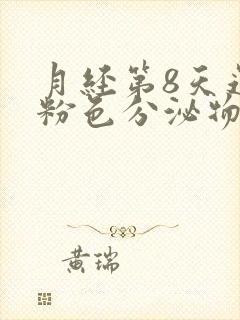 月经第8天
粉色分泌物
黄瑞